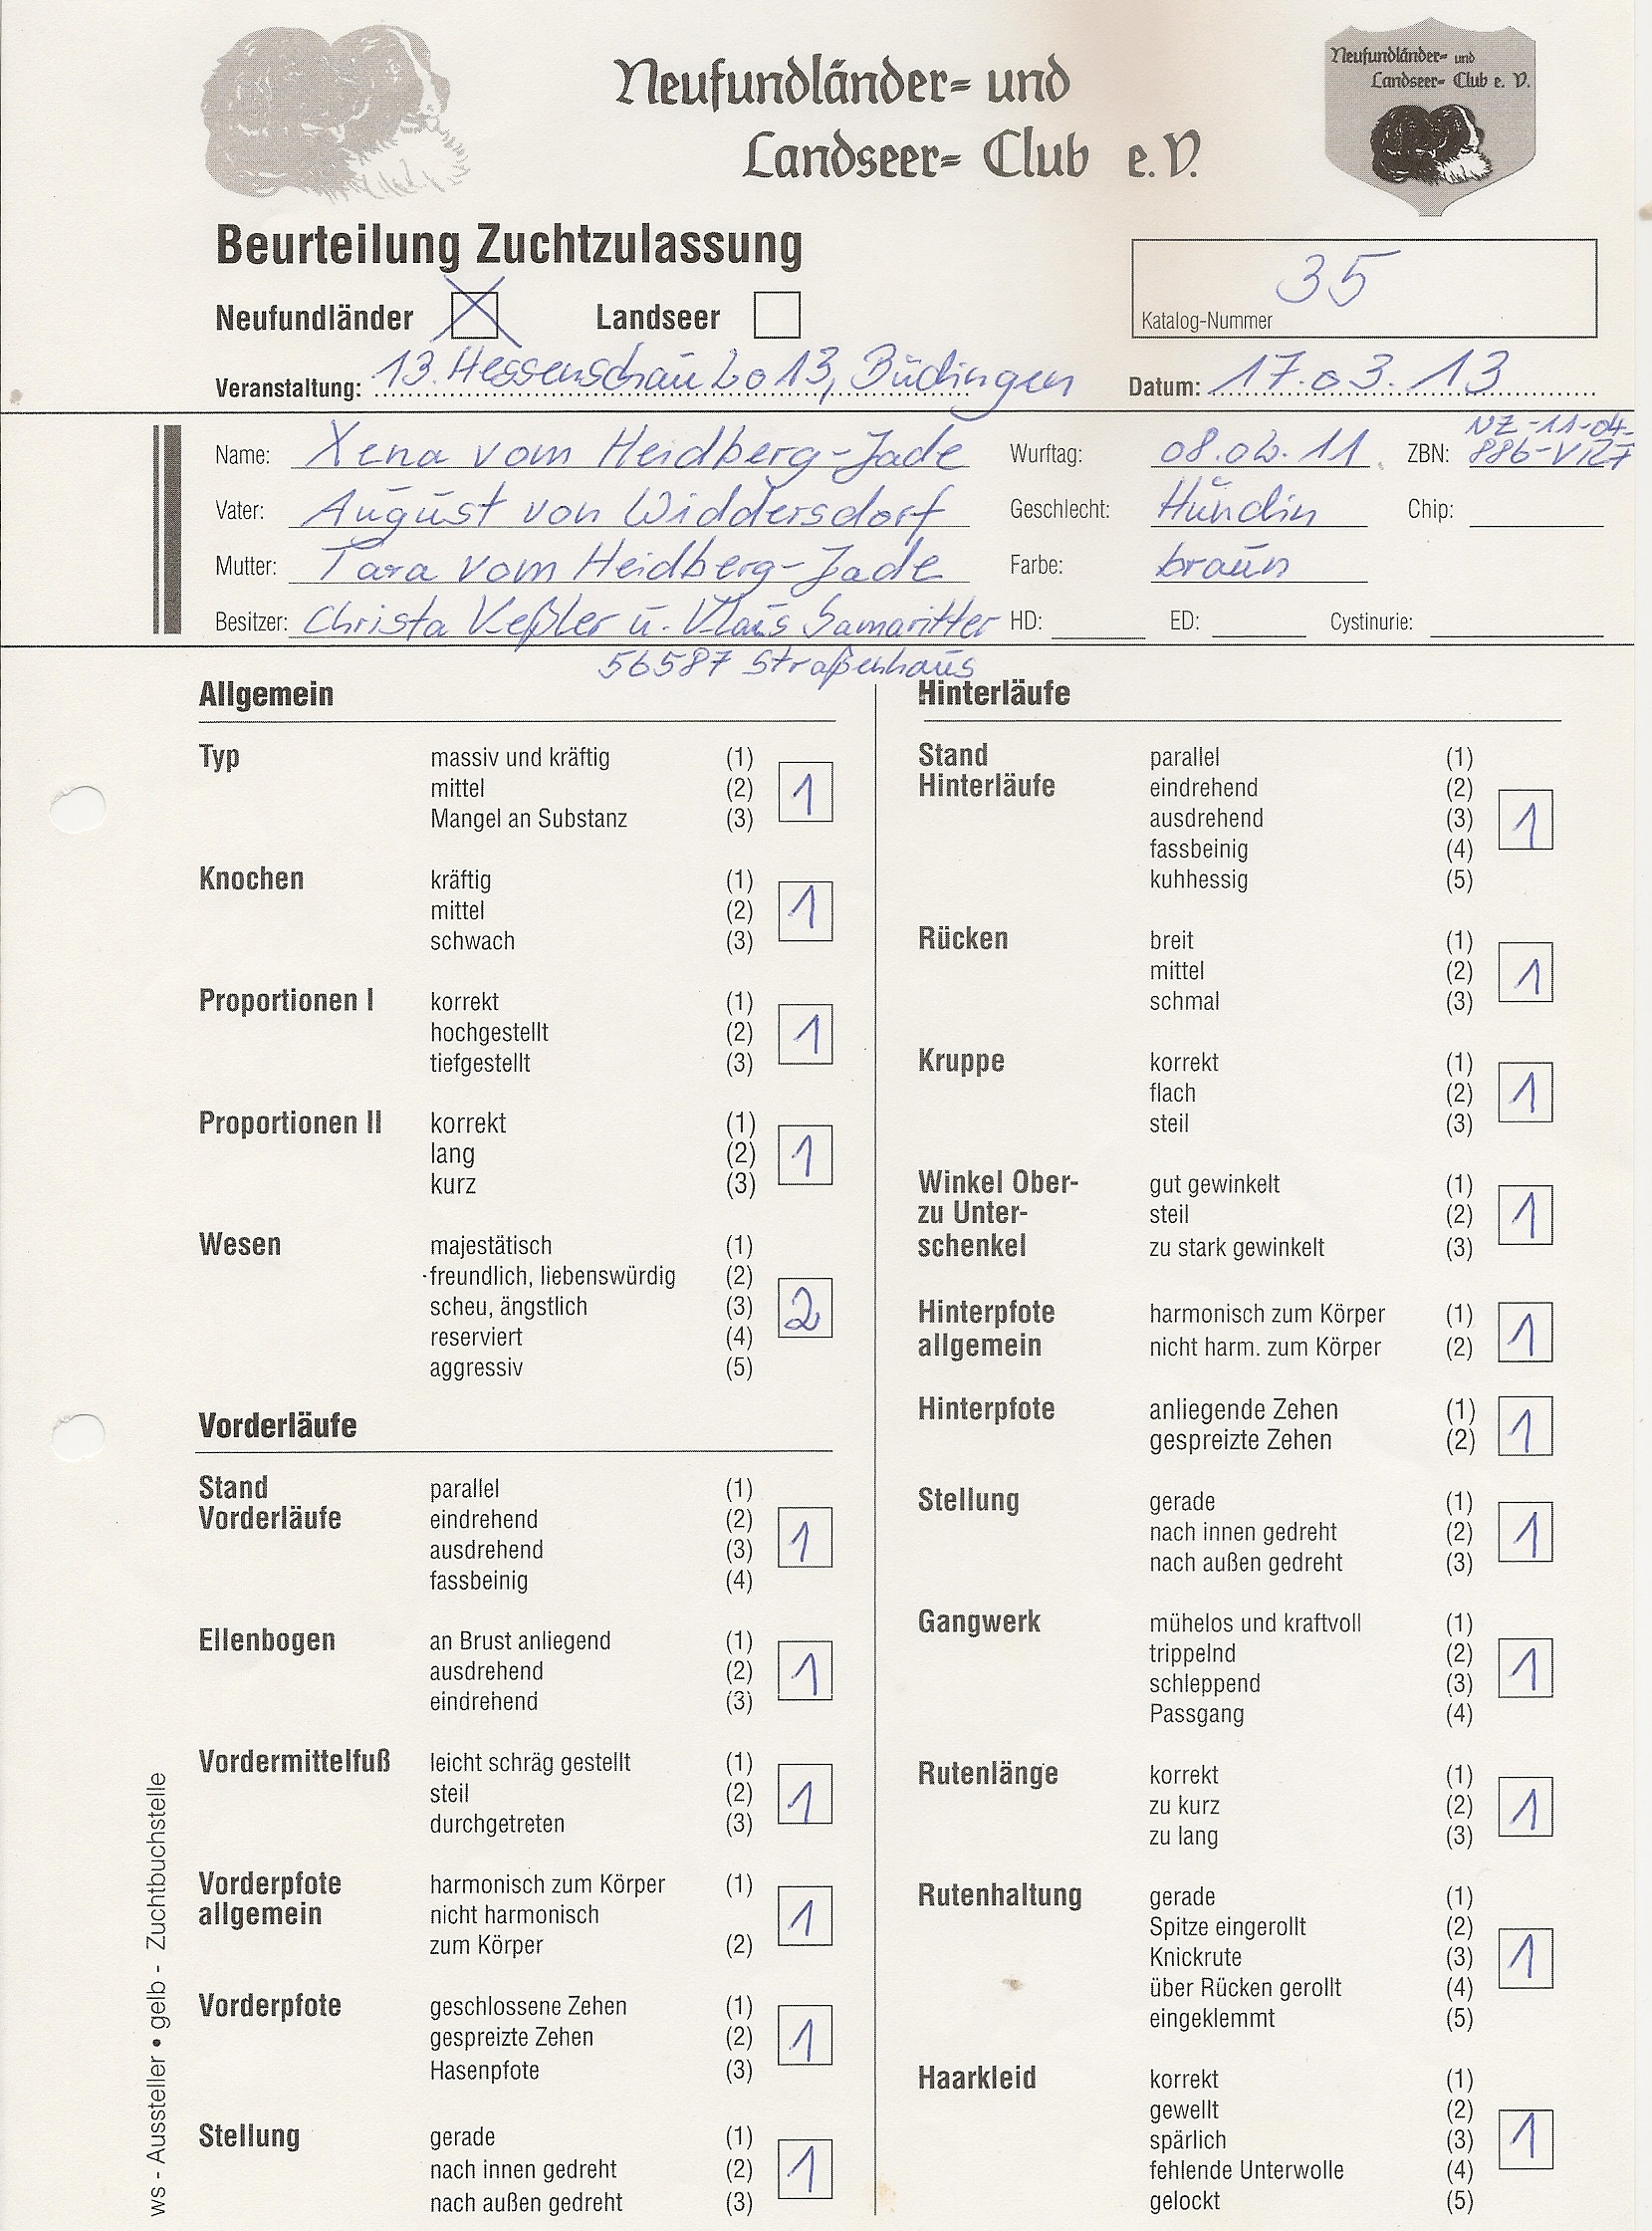 Neufundländer- und
Landseer- Club e.V.
Neufundländer- und
Landseer- Club e. V.
Beurteilung Zuchtzulassung
35
Katalog-Nummer
Neufundländer Landseer
Veranstaltung: 13. Hessenschau 2013, Büdingen Datum: 17.03.13
Name: Xena vom Heidberg-Jade Wurftag: 08.02.11 ZBN: NZ-11-04-
Vater: August von Widdersdorf Geschlecht: Hündin Chip:
Mutter: Tara vom Heidberg-Jade Farbe: braun
Besitzer: Christa Keßler u. Klaus Samaritter HD: ED: Cystinurie:
56587 Straßenhaus
Allgemein
Typ massiv und kräftig (1)
mittel (2) 1
Mangel an Substanz (3)
Knochen kräftig (1)
mittel (2) 1
schwach (3)
Proportionen I korrekt (1)
hochgestellt (2) 1
tiefgestellt (3)
Proportionen II korrekt (1)
lang (2) 1
kurz (3)
Wesen majestätisch (1)
freundlich, liebenswürdig (2)
scheu, ängstlich (3) 2
reserviert (4)
aggressiv (5)
Vorderläufe
Stand parallel (1)
Vorderläufe eindrehend (2) 1
ausdrehend (3)
fassbeinig (4)
Ellenbogen an Brust anliegend (1)
ausdrehend (2) 1
eindrehend (3)
Vordermittelfuß leicht schräg gestellt (1)
steil (2) 1
durchgetreten (3)
Vorderpfote harmonisch zum Körper (1)
allgemein nicht harmonisch 1
zum Körper (2)
Vorderpfote geschlossene Zehen (1)
gespreizte Zehen (2) 1
Hasenpfote (3)
Stellung gerade (1)
nach innen gedreht (2) 1
nach außen gedreht (3)
Hinterläufe
Stand parallel (1)
Hinterläufe eindrehend (2)
ausdrehend (3) 1
fassbeinig (4)
kuhhessig (5)
Rücken breit (1)
mittel (2) 1
schmal (3)
Kruppe korrekt (1)
flach (2) 1
steil (3)
Winkel Ober- gut gewinkelt (1)
zu Unter- steil (2) 1
schenkel zu stark gewinkelt (3)
Hinterpfote harmonisch zum Körper (1)
allgemein nicht harm. zum Körper (2) 1
Hinterpfote anliegende Zehen (1)
gespreizte Zehen (2) 1
Stellung gerade (1)
nach innen gedreht (2) 1
nach außen gedreht (3)
Gangwerk mühelos und kraftvoll (1)
trippelnd (2) 1
schleppend (3)
Passgang (4)
Rutenlänge korrekt (1)
zu kurz (2) 1
zu lang (3)
Rutenhaltung gerade (1)
Spitze eingerollt (2)
Knickrute (3) 1
über Rücken gerollt (4)
eingeklemmt (5)
Haarkleid korrekt (1)
gewellt (2)
spärlich (3) 1
fehlende Unterwolle (4)
gelockt (5)
ws - Aussteller • gelb - Zuchtbuchstelle